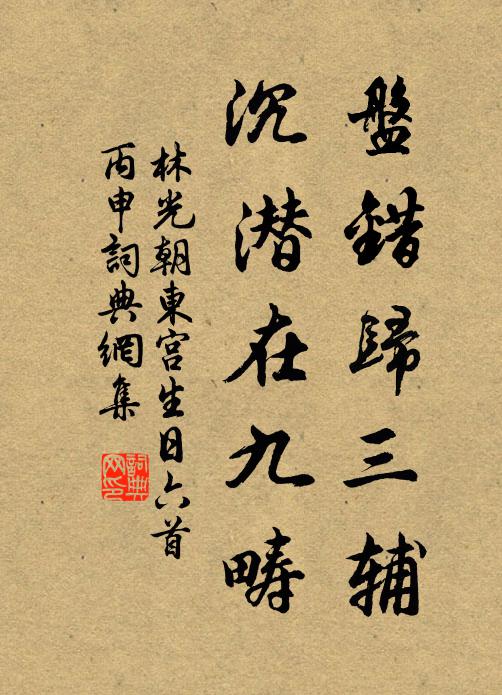 盤錯歸三辅
沉潜在九畴
林光朝東宮生日六首
丙申詞典網集
詞典
网印